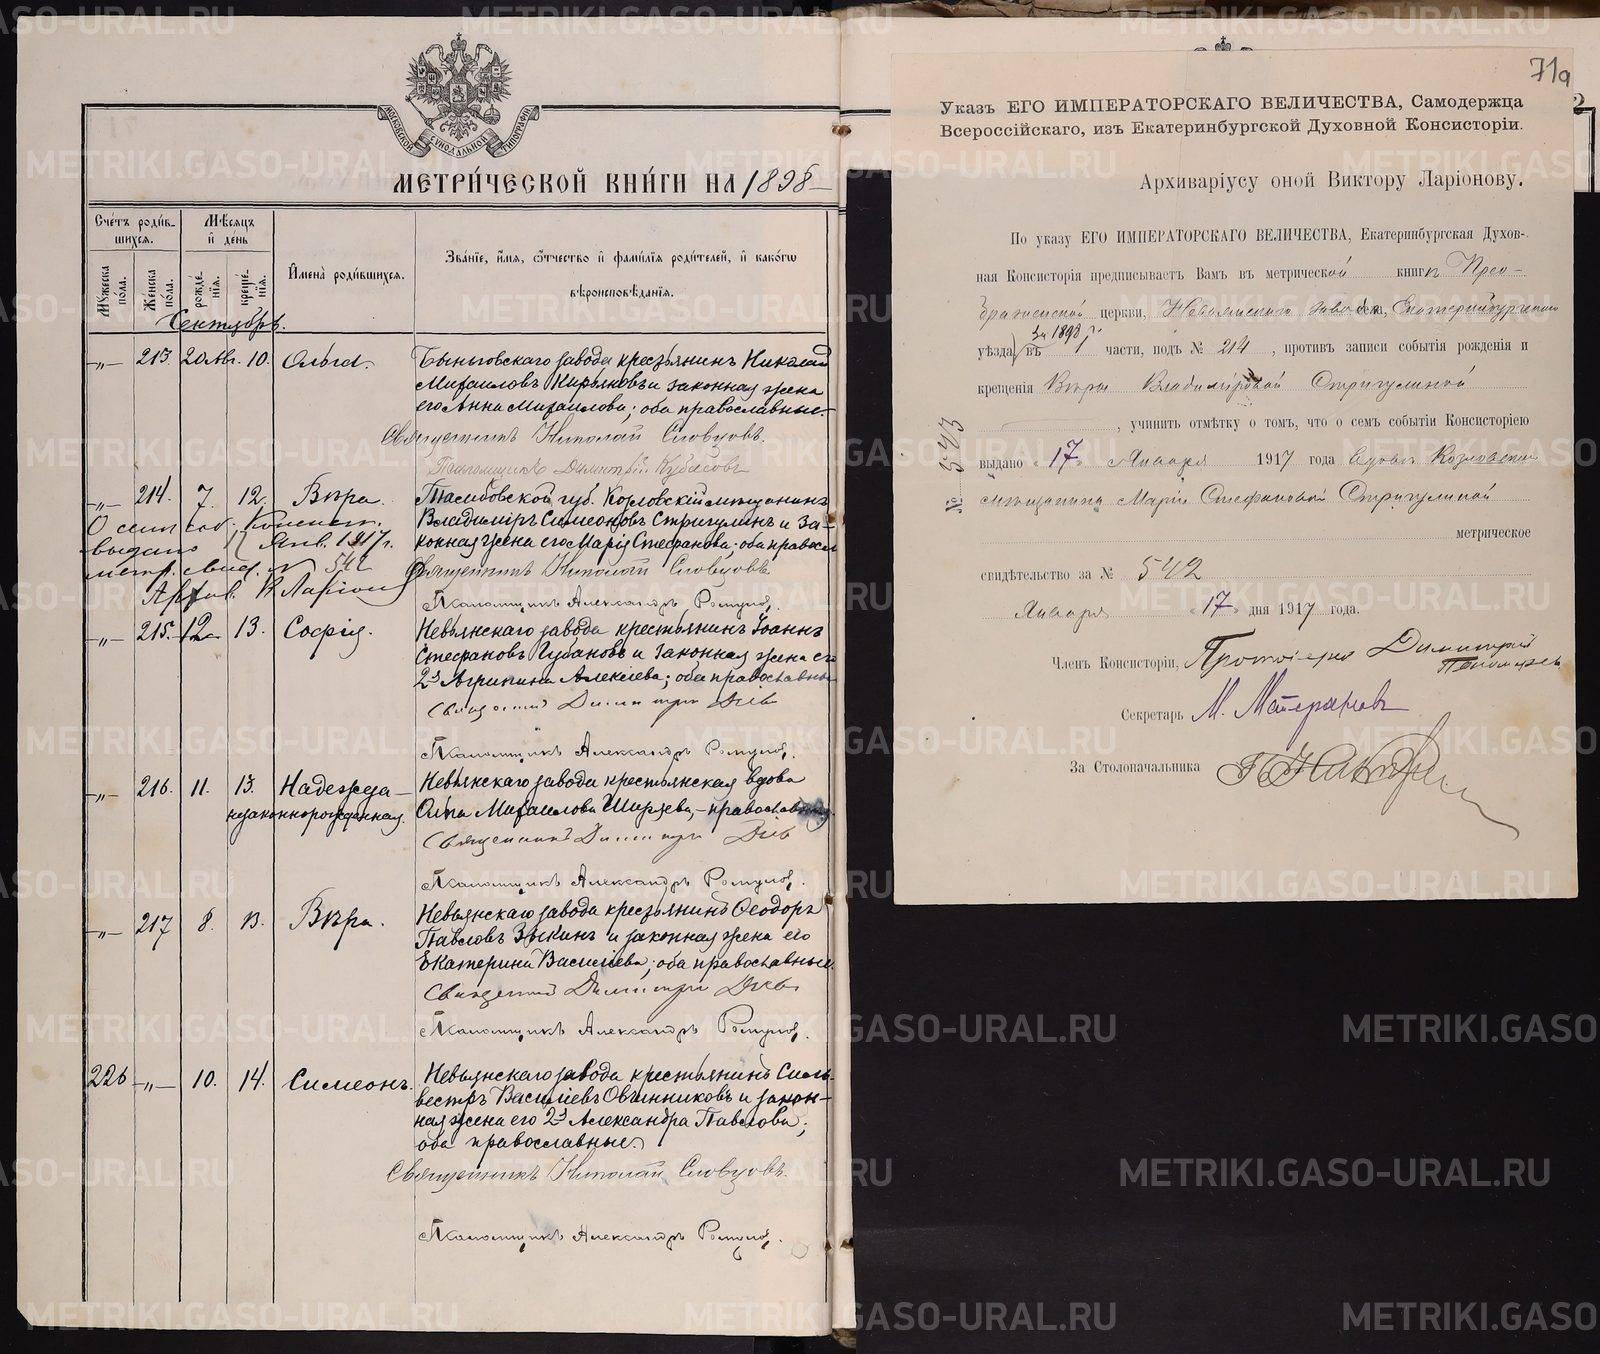 МОСКОВСКОЙ СѴНОДАЛЬНОЙ ТИПОГРАФІИ
МЕТРИ́ЧЕСКОЙ КНИ́ГИ НА 1898
Сче́тъ роди́в-
шихся.
Мѣ́сяцъ
и҆ день
Мꙋ́жеска
по́ла.
Же́нска
по́ла.
рожде́-
нїѧ.
креще́-
нїѧ.
И҆мена̀ роди́вшихсѧ.
Зва́нїе, и҆́мѧ, ѻ҆́тчество и҆ фами́лїѧ роди́телей, и҆ како́гѡ
вѣроисповѣ́данїѧ.
Сентябрь.
-„- 213. 20 Авг. 10. Ольга. Быньговскаго завода крестьянинъ Николай
Михаиловъ Кирьяновъ и законная жена
его Анна Михаилова; оба православные.
Священникъ Николай Словцовъ.
Псаломщикъ Димитрій Кубасовъ
-„- 214. 7. 12. Вѣра. Тамбовской губ. Козловскій мѣщанинъ
Владиміръ Симеоновъ Стригулинъ и за-
конная жена его Марія Стефанова; оба правосл
Священникъ Николай Словцовъ
Псаломщикъ Александръ
О семъ соб. Консист.
выдано 17 Янв. 1917 г.
метр. свид. № 542
Архив. В Ларіонов
-„- 215. 12 13. Софія. Невьянскаго завода крестьянинъ Іоаннъ
Стефановъ Губановъ и законная жена его
2й Агрипина Алексіева; оба православные
Священник Димитри
Псаломщикъ Александръ
-„- 216. 11. 13. Надежда - Невьянскаго завода крестьянская вдова
незаконнорожденная. Ольга Михаилова Ширяева, - православная
Священникъ Димитри
Псаломщикъ Александръ
-„- 217 8. 13. Вѣра. Невьянскаго завода крестьянинъ Ѳеодоръ
Павловъ Зыкинъ и законная жена его
Екатерина Василіева; оба православные.
Священник Димитри
Псаломщикъ Александръ
226 -„- 10. 14. Симеонъ. Невьянскаго завода крестьянинъ Силь-
вестръ Василіевъ Овчинниковъ и закон-
ная жена его 2й Александра Павлова;
оба православные.
Священникъ Николай Словцовъ.
Псаломщикъ Александръ
71а
Указъ ЕГО ИМПЕРАТОРСКАГО ВЕЛИЧЕСТВА, Самодержца
Всероссійскаго, изъ Екатеринбургской Духовной Консисторіи.
Архиваріусу оной Виктору Ларіонову.
По указу ЕГО ИМПЕРАТОРСКАГО ВЕЛИЧЕСТВА, Екатеринбургская Духов-
ная Консисторія предписываетъ Вамъ въ метрической книгѣ Прео-
браженской церкви, Невьянскаго завода села, Екатеринбургскаго
уѣзда, за 1898 г. въ части, подъ № 214, противъ записи событія рожденія и
крещенія Вѣры Владиміровой Стригулиной
, учинить отмѣтку о томъ, что о семъ событіи Консисторіею
выдано „17" Января 1917 года вдовѣ Козловскаго
мѣщанина Маріи Стефановой Стригулиной
метрическое
свидѣтельство за № 542
Января „17" дня 1917 года.
№ 543
Членъ Консисторіи, Протоіерей Димитрій
Секретарь М. Матерановъ
За Столоначальника
METRIKI.GASO-URAL.RU